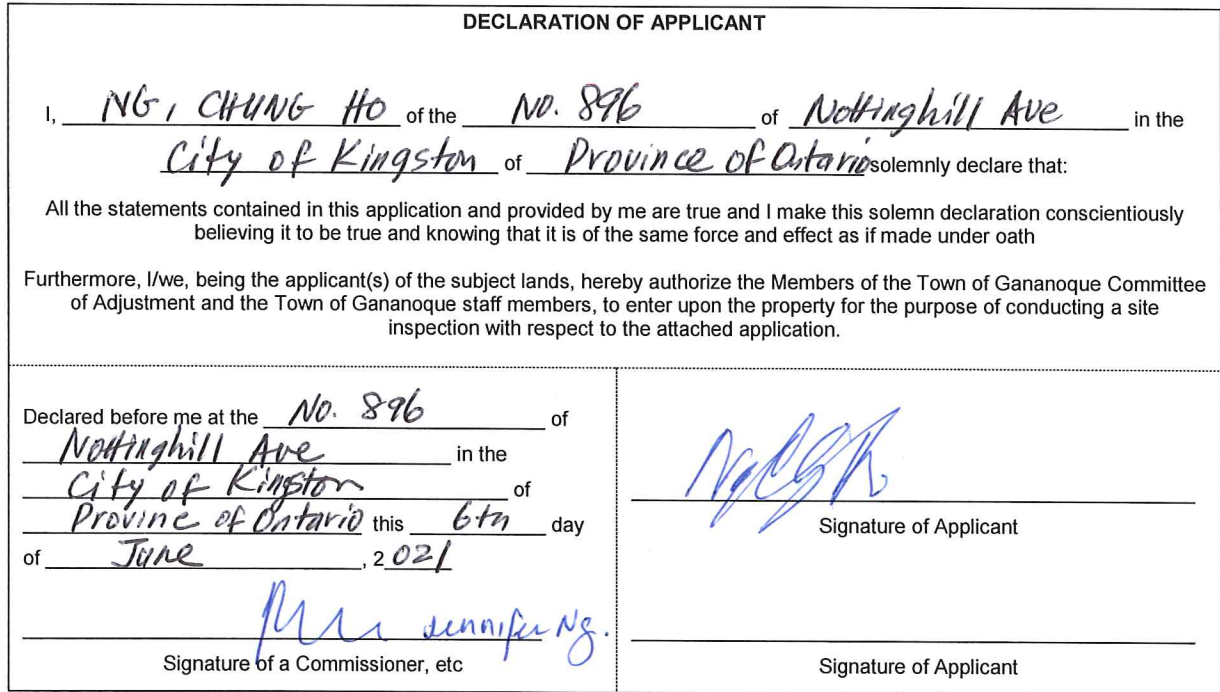 DECLARATION OF APPLICANT
I, NG, CHUNG HO of the NO. 896 of Nottinghill Ave in the
City of Kingston of Province of Ontario solemnly declare that:
All the statements contained in this application and provided by me are true and I make this solemn declaration conscientiously
believing it to be true and knowing that it is of the same force and effect as if made under oath
Furthermore, I/we, being the applicant(s) of the subject lands, hereby authorize the Members of the Town of Gananoque Committee
of Adjustment and the Town of Gananoque staff members, to enter upon the property for the purpose of conducting a site
inspection with respect to the attached application.
Declared before me at the NO. 896 of
Nottinghill Ave in the
City of Kingston of
Provine of Ontario this 6th day
of June, 2021
Jennifer Ng.
Signature of a Commissioner, etc
Signature of Applicant
Signature of Applicant